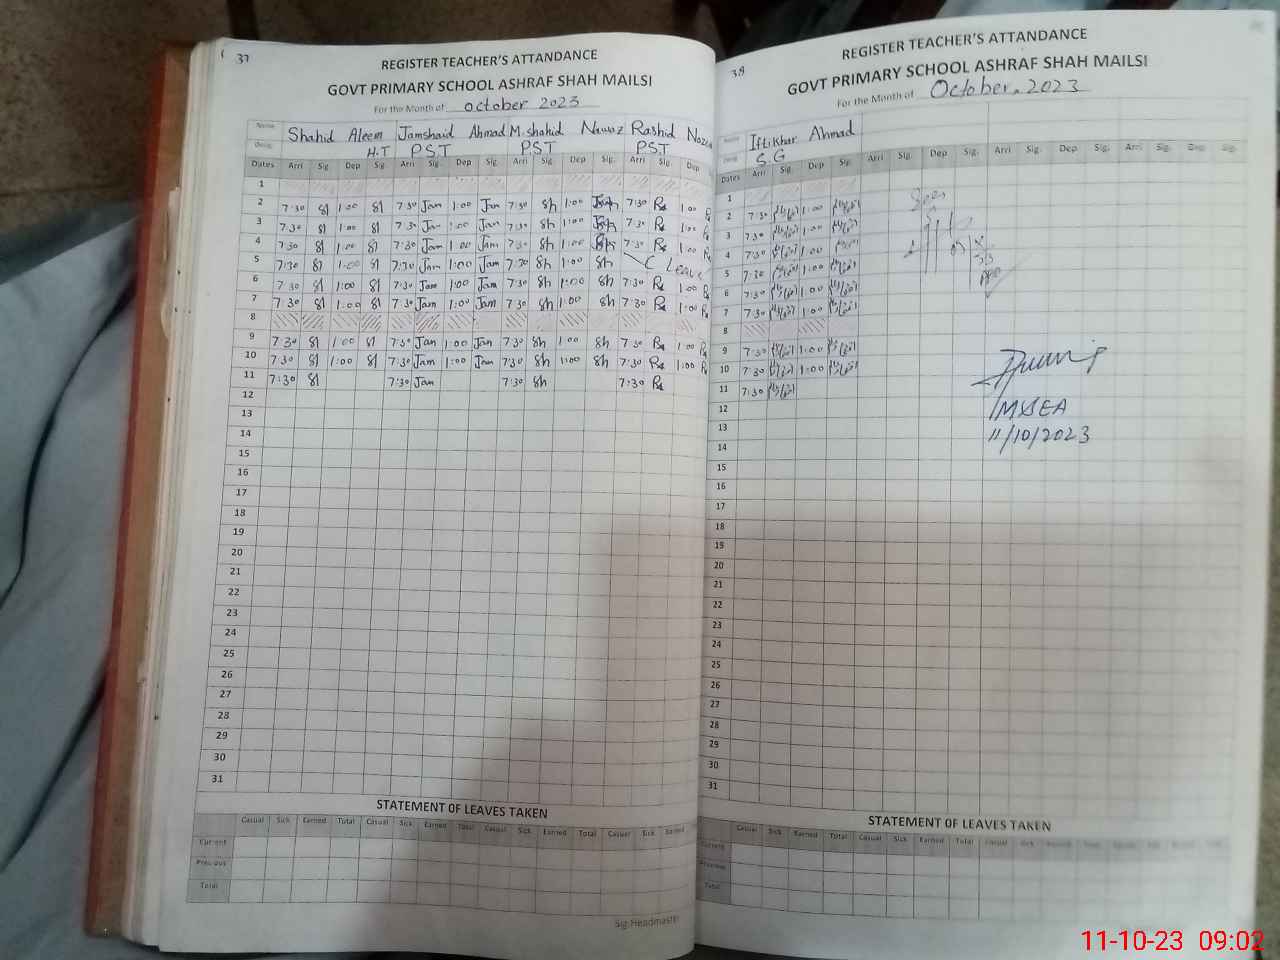 37
REGISTER TEACHER'S ATTANDANCE
GOVT PRIMARY SCHOOL ASHRAF SHAH MAILSI
For the Month of October 2023
Name Shahid Aleem Jamshaid Ahmad M.shahid Nawaz Rashid
Desig. H.T PST PST PST
Dates Arri Sig. Dep Sig. Arri Sig. Dep Sig. Arri Sig. Dep Sig. Arri Sig. Dep
1
2 7:30 8l 1:00 8l 7:30 Jam 1:00 Jam 7:30 8h 1:00 7:30 Ra 1:00
3 7:30 8l 1:00 8l 7:30 Jam 1:00 Jam 7:30 8h 1:00 7:30 Ra 1:00
4 7:30 8l 1:00 8l 7:30 Jam 1:00 Jam 7:30 8h 1:00 7:30 Ra 1:00
5 7:30 8l 1:00 8l 7:30 Jam 1:00 Jam 7:30 8h 1:00 8h C Leave
6 7:30 8l 1:00 8l 7:30 Jam 1:00 Jam 7:30 8h 1:00 8h 7:30 Ra 1:00
7 7:30 8l 1:00 8l 7:30 Jam 1:00 Jam 7:30 8h 1:00 8h 7:30 Ra 1:00
8
9 7:30 8l 1:00 8l 7:30 Jan 1:00 Jan 7:30 8h 1:00 8h 7:30 Ra 1:00
10 7:30 8l 1:00 8l 7:30 Jam 1:00 Jam 7:30 8h 1:00 8h 7:30 Ra 1:00
11 7:30 8l 7:30 Jam 7:30 8h 7:30 Ra
12
13
14
15
16
17
18
19
20
21
22
23
24
25
26
27
28
29
30
31
STATEMENT OF LEAVES TAKEN
Casual Sick Earned Total Casual Sick Earned Total Casual Sick Earned Total Casual Sick Earned
Current
Previous
Total
Sig: Headmaster
38
REGISTER TEACHER'S ATTANDANCE
GOVT PRIMARY SCHOOL ASHRAF SHAH MAILSI
For the Month of October. 2023
Name Iftikhar Ahmad
Desig. S.G
Dates Arri Sig. Dep Sig. Arri Sig. Dep Sig. Arri Sig. Dep Sig. Arri Sig. Dep Sig.
1
2 7:30 1:00
3 7:30 1:00
4 7:30 1:00
5 7:30 1:00
6 7:30 1:00
7 7:30 1:00
8
9 7:30 1:00
10 7:30 1:00
11 7:30
12
13
14
15
16
17
18
19
20
21
22
23
24
25
26
27
28
29
30
31
Seen
MSEA
11/10/2023
STATEMENT OF LEAVES TAKEN
Casual Sick Earned Total Casual Sick Earned Total Casual Sick Earned Total
Current
Previous
Total
11-10-23 09:02